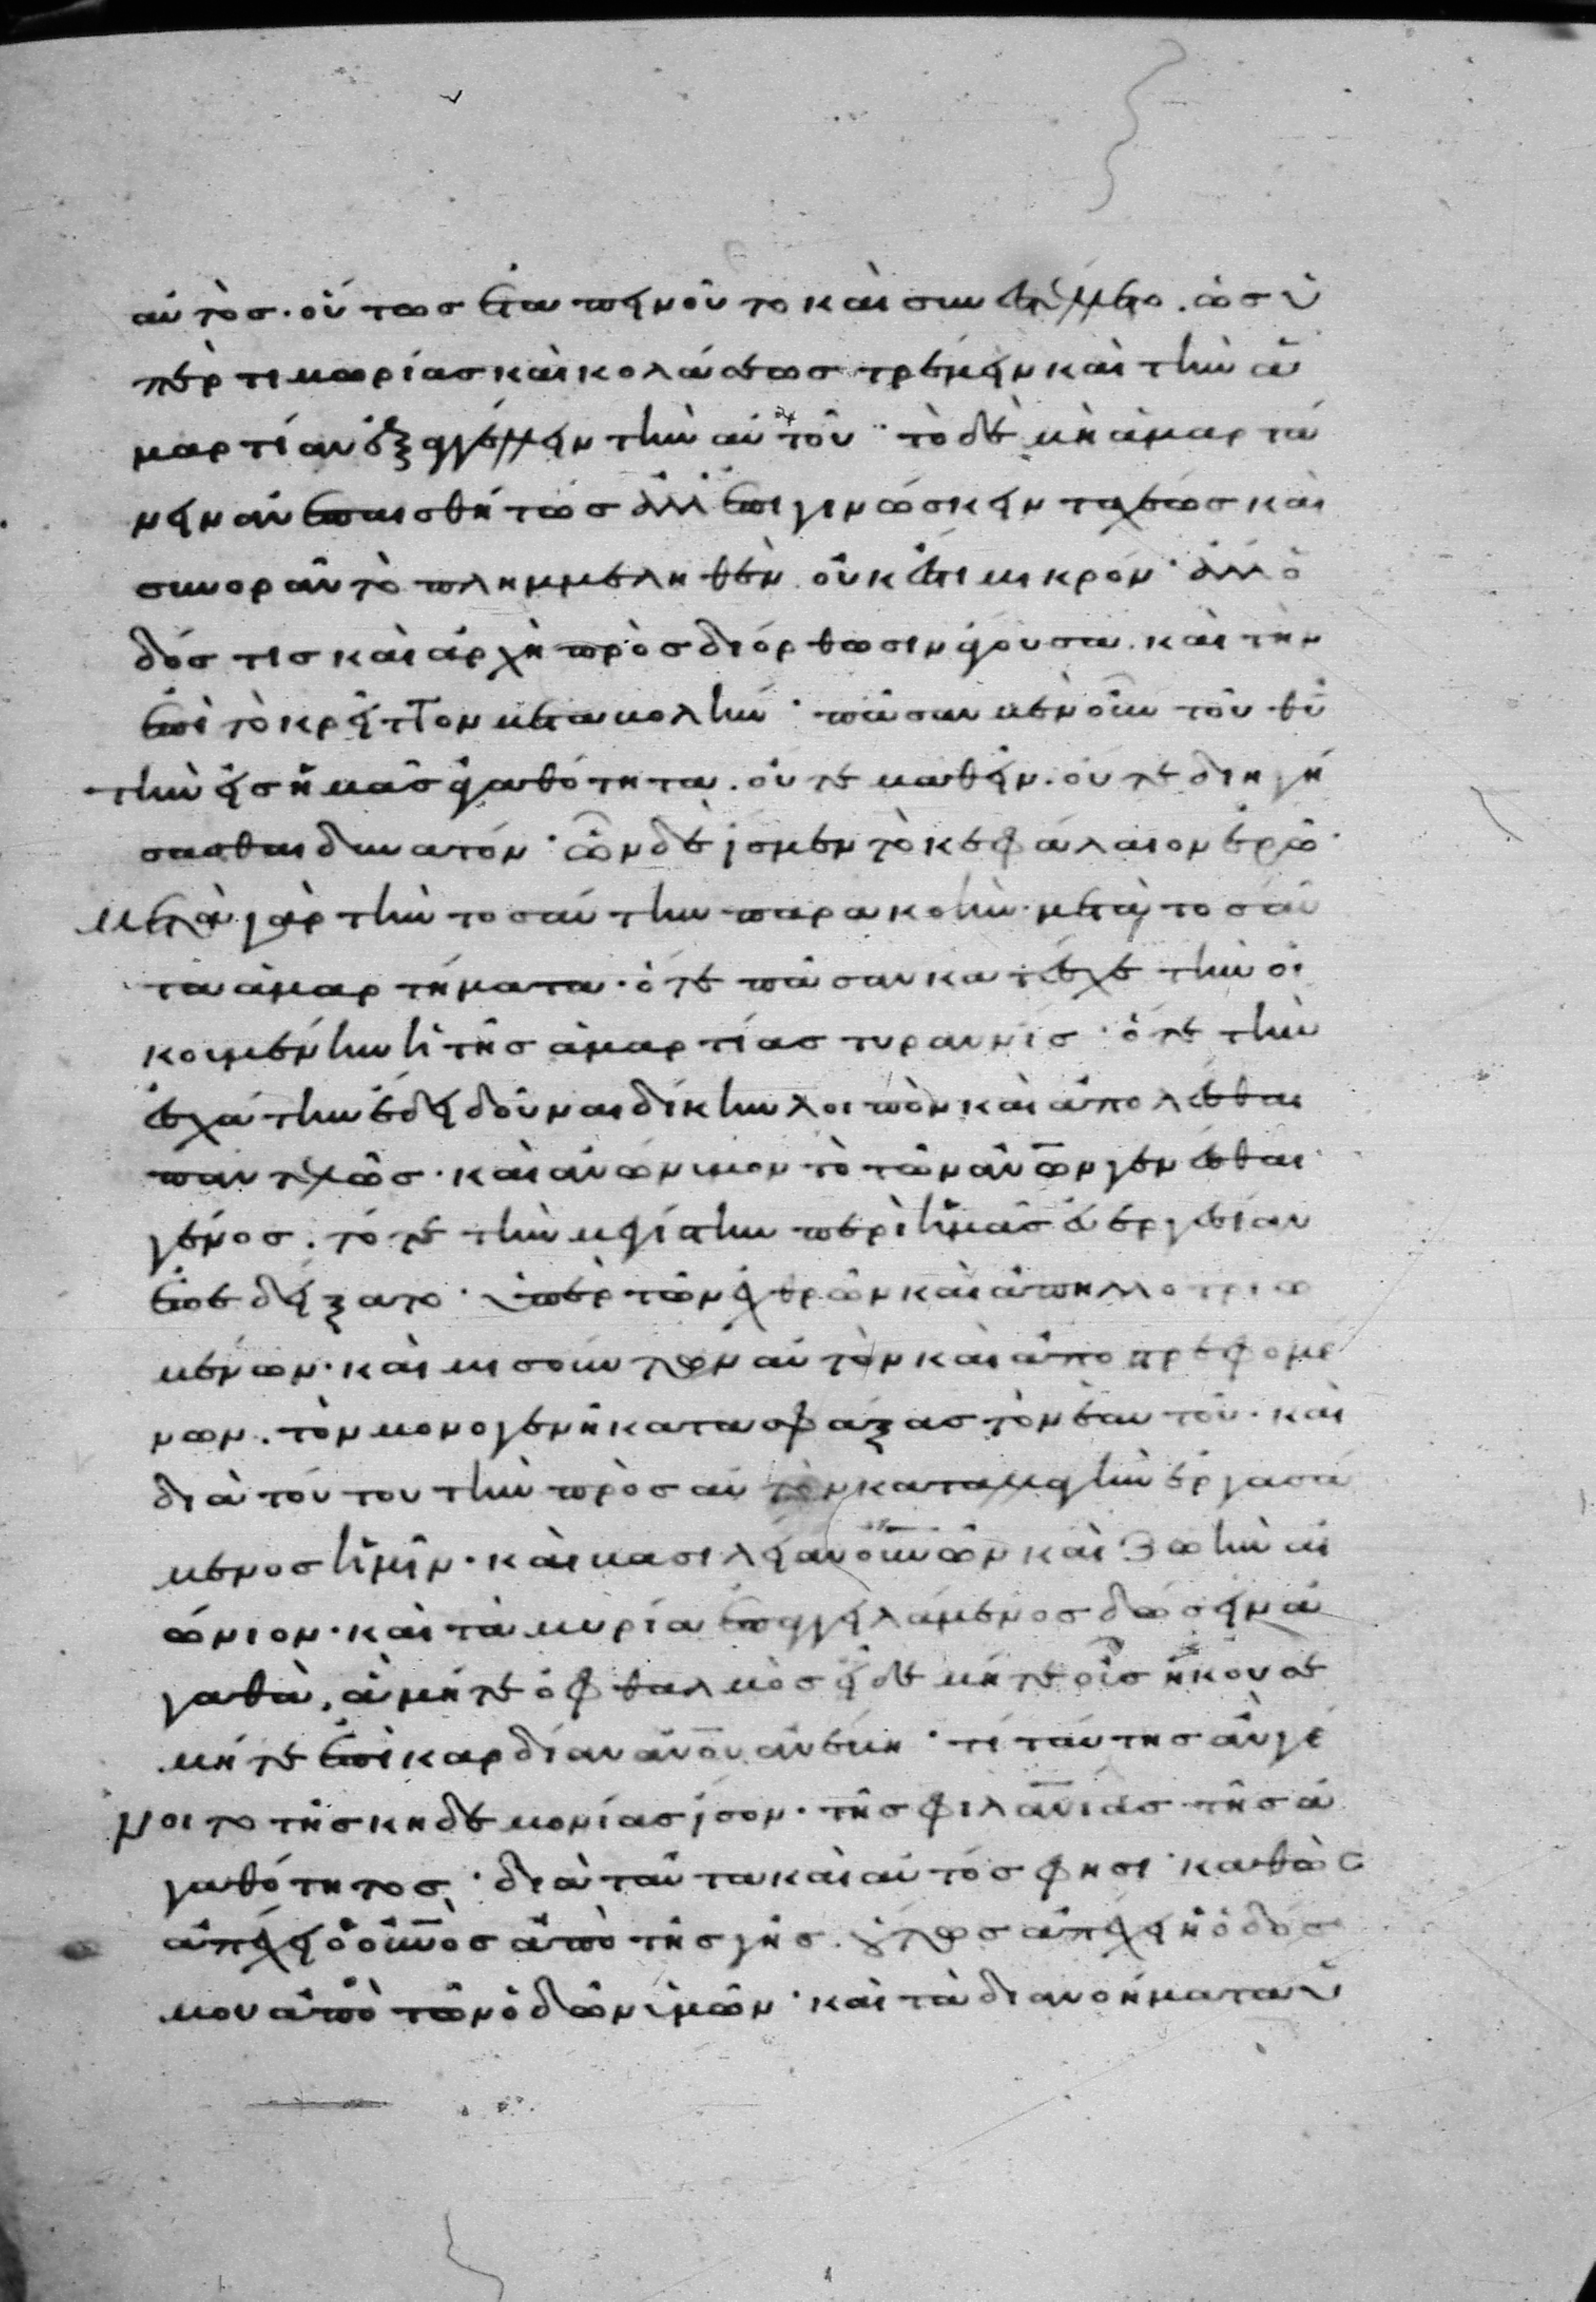 αὐτὸς· οὕτως ἐταπεινοῦτο καὶ συνετέμνετο. ὡς ὑ
πὲρ τιμωρίας καὶ κολάσεως τρέμειν καὶ τὴν ἁ
μαρτίαν ἐξαγγέλλειν τὴν αὐτοῦ· τὸ δὲ μὴ ἁμαρτά
νειν ἀνεπαισθήτως ἀλλ ἐπιγινώσκειν ταχέως καὶ
συνορᾶν τὸ πλημμεληθὲν οὐκ ἔτι μικρόν· ἀλλ ὁ
δός τις καὶ ἀρχὴ πρὸς διόρθωσιν ἄγουσα. καὶ τὴν
ἐπὶ τὸ κρεῖττον μεταβολήν· πᾶσαν μὲν οὖν τοῦ θυ
τὴν εἰς ἡμᾶς ἀγαθότητα. οὔτε μαθεῖν. οὔτε διηγή
σασθαι δυνατόν· ὧν δὲ ἴσμεν τὸ κεφάλαιον ἐρῶ·
μετὰ γὰρ τὴν τοσαύτην παρακοήν· μετὰ τοσαῦ
τα ἁμαρτήματα· ὅτε πᾶσαν κατεῖχε τὴν οἰ
κουμένην ἡ τῆς ἁμαρτίας τυραννίς· ὅτε τὴν
ἐσχάτην ἔδει δοῦναι δίκην λοιπὸν καὶ ἀπολέσθαι
παντελῶς· καὶ ἀνώνυμον τὸ τῶν ἀνων γενέσθαι
γένος. τότε τὴν μεγίστην περὶ ἡμᾶς εὐεργεσίαν
ἐπεδείξατο· ὑπὲρ τῶν ἐχθρῶν καὶ ἀπηλλοτριω
μένων· καὶ μισούντων αὐτὸν καὶ ἀποστρεφομέ
νων. τὸν μονογενῆ κατασφάξας τὸν ἑαυτοῦ· καὶ
διὰ τούτου τὴν πρὸς αὐτὸν καταλλαγὴν ἐργασά
μενος ἡμῖν· καὶ βασιλείαν οὐνῶν καὶ ζωὴν αἰ
ώνιον· καὶ τὰ μυρία ἐπαγγειλάμενος δώσειν ἀ
γαθὰ, ἃ μήτε ὀφθαλμὸς εἶδε μήτε οὖς ἤκουσε
μήτε ἐπὶ καρδίαν ἀνου ἀνέβη· τί ταύτης ἂν γέ
νοιτο τῆς κηδεμονίας ἴσον· τῆς φιλανιας τῆς ἀ
γαθότητος, διὰ ταῦτα καὶ αὐτός φησι· καθὼς
ἀπέχει ὁ οὐνος ἀπὸ τῆς γῆς. οὕτως ἀπέχει ἡ ὁδός
μου ἀπὸ τῶν ὁδῶν ὑμῶν· καὶ τὰ διανοήματα ὑ